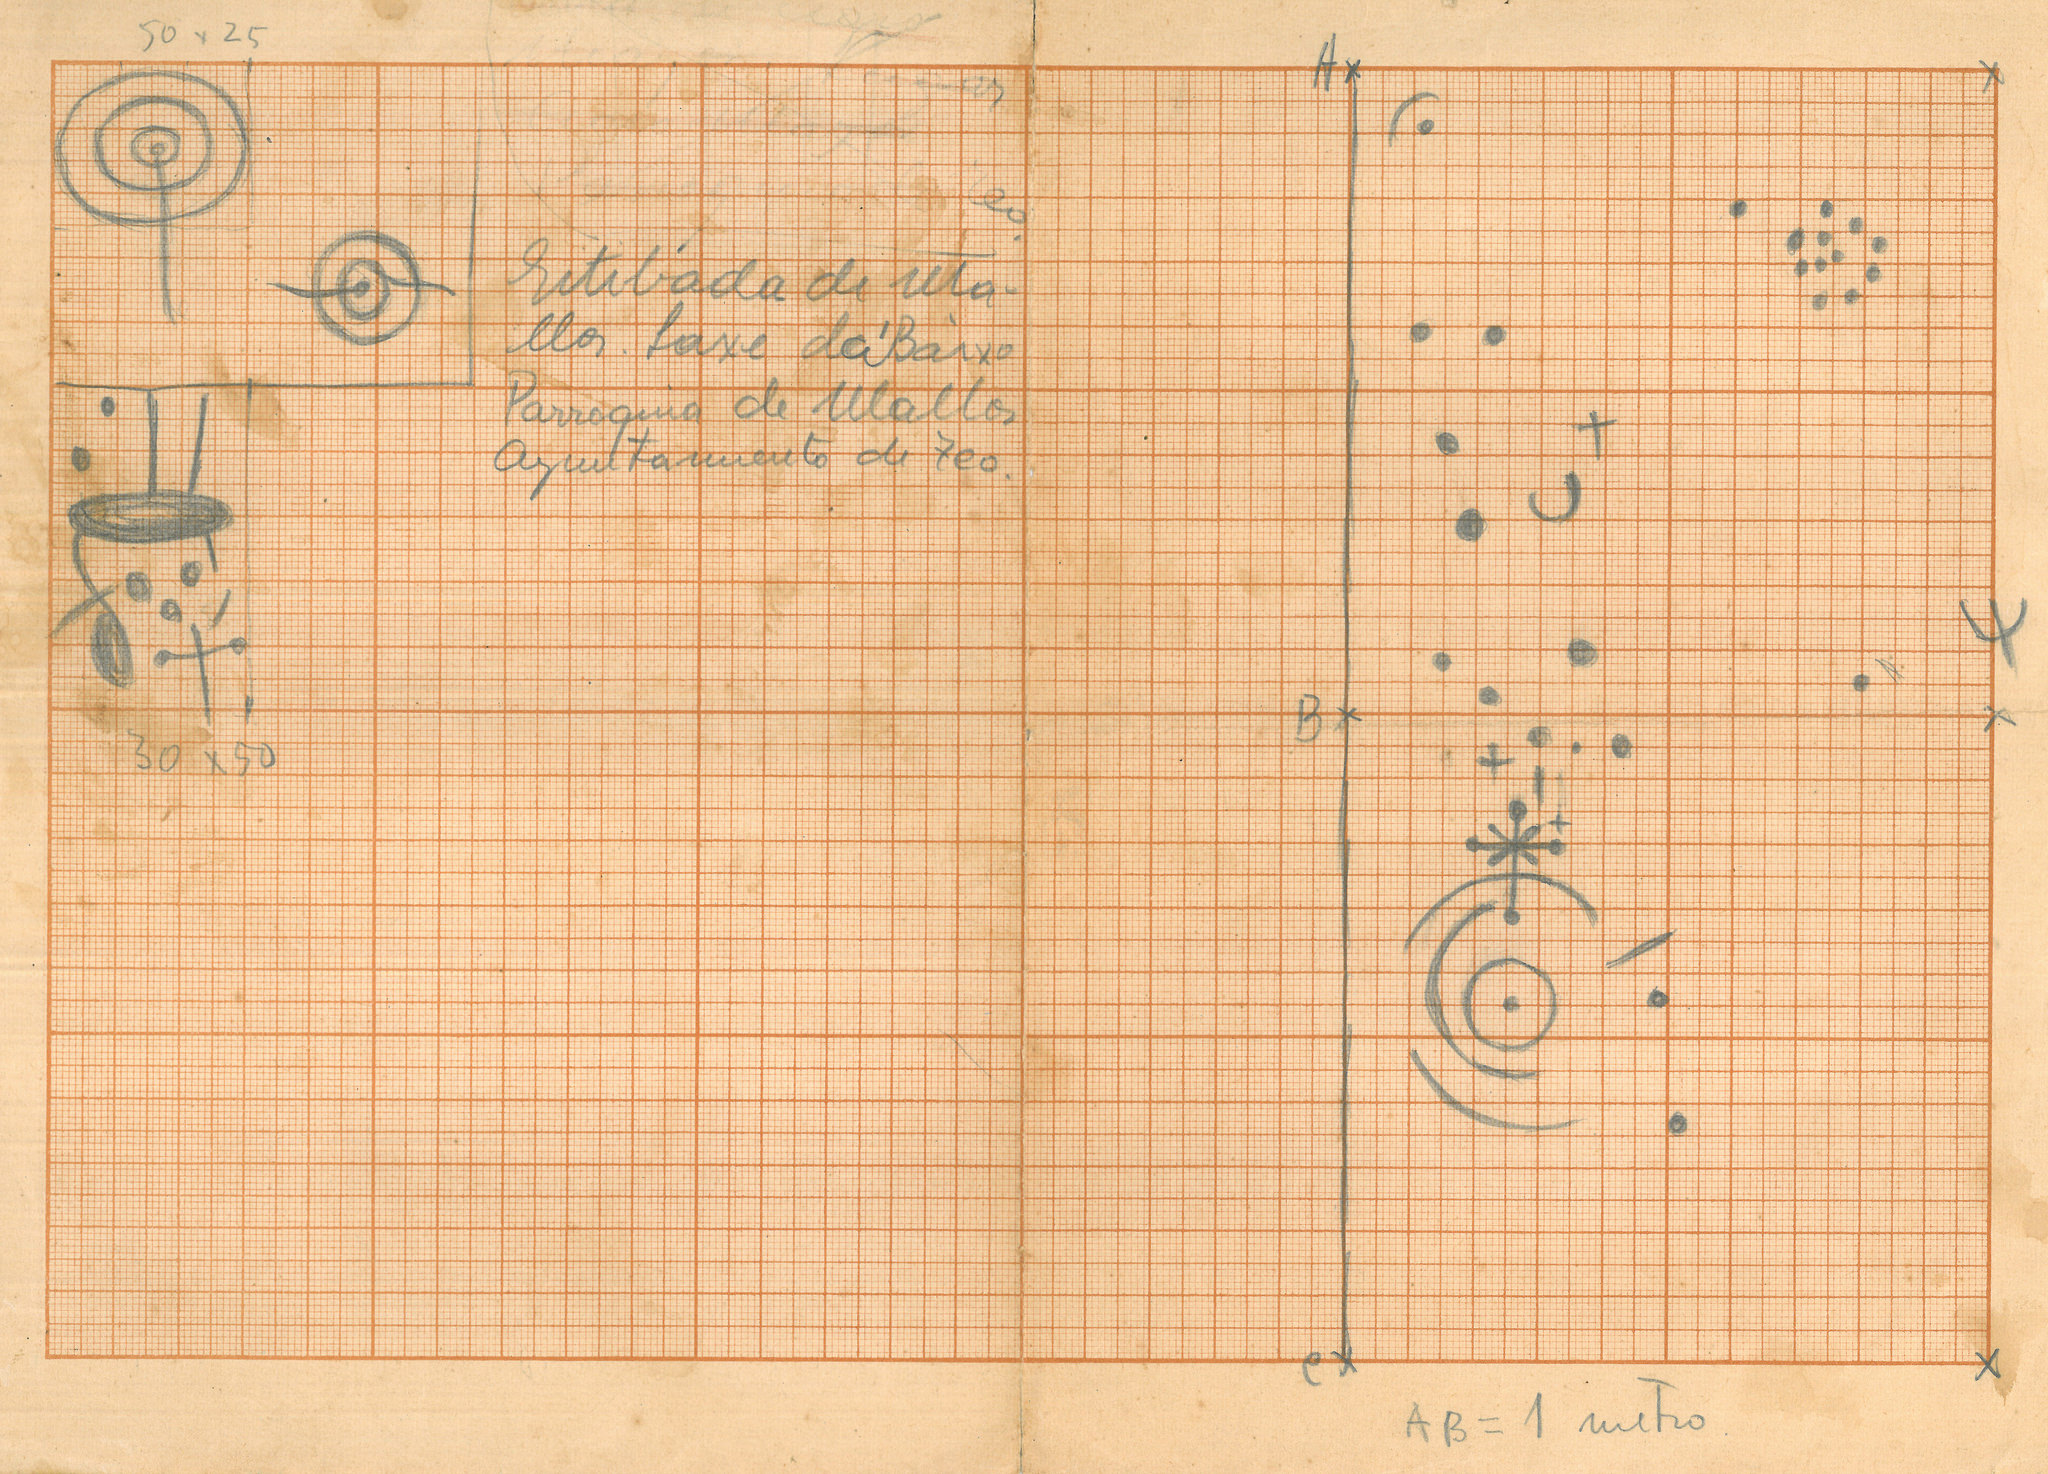 50 x 25
A
Estibada de Ma-
llos. Laxe da Baixo
Parroquia de Mallos
Ayuntamiento de Teo.
B
30 x 50
C
AB = 1 metro